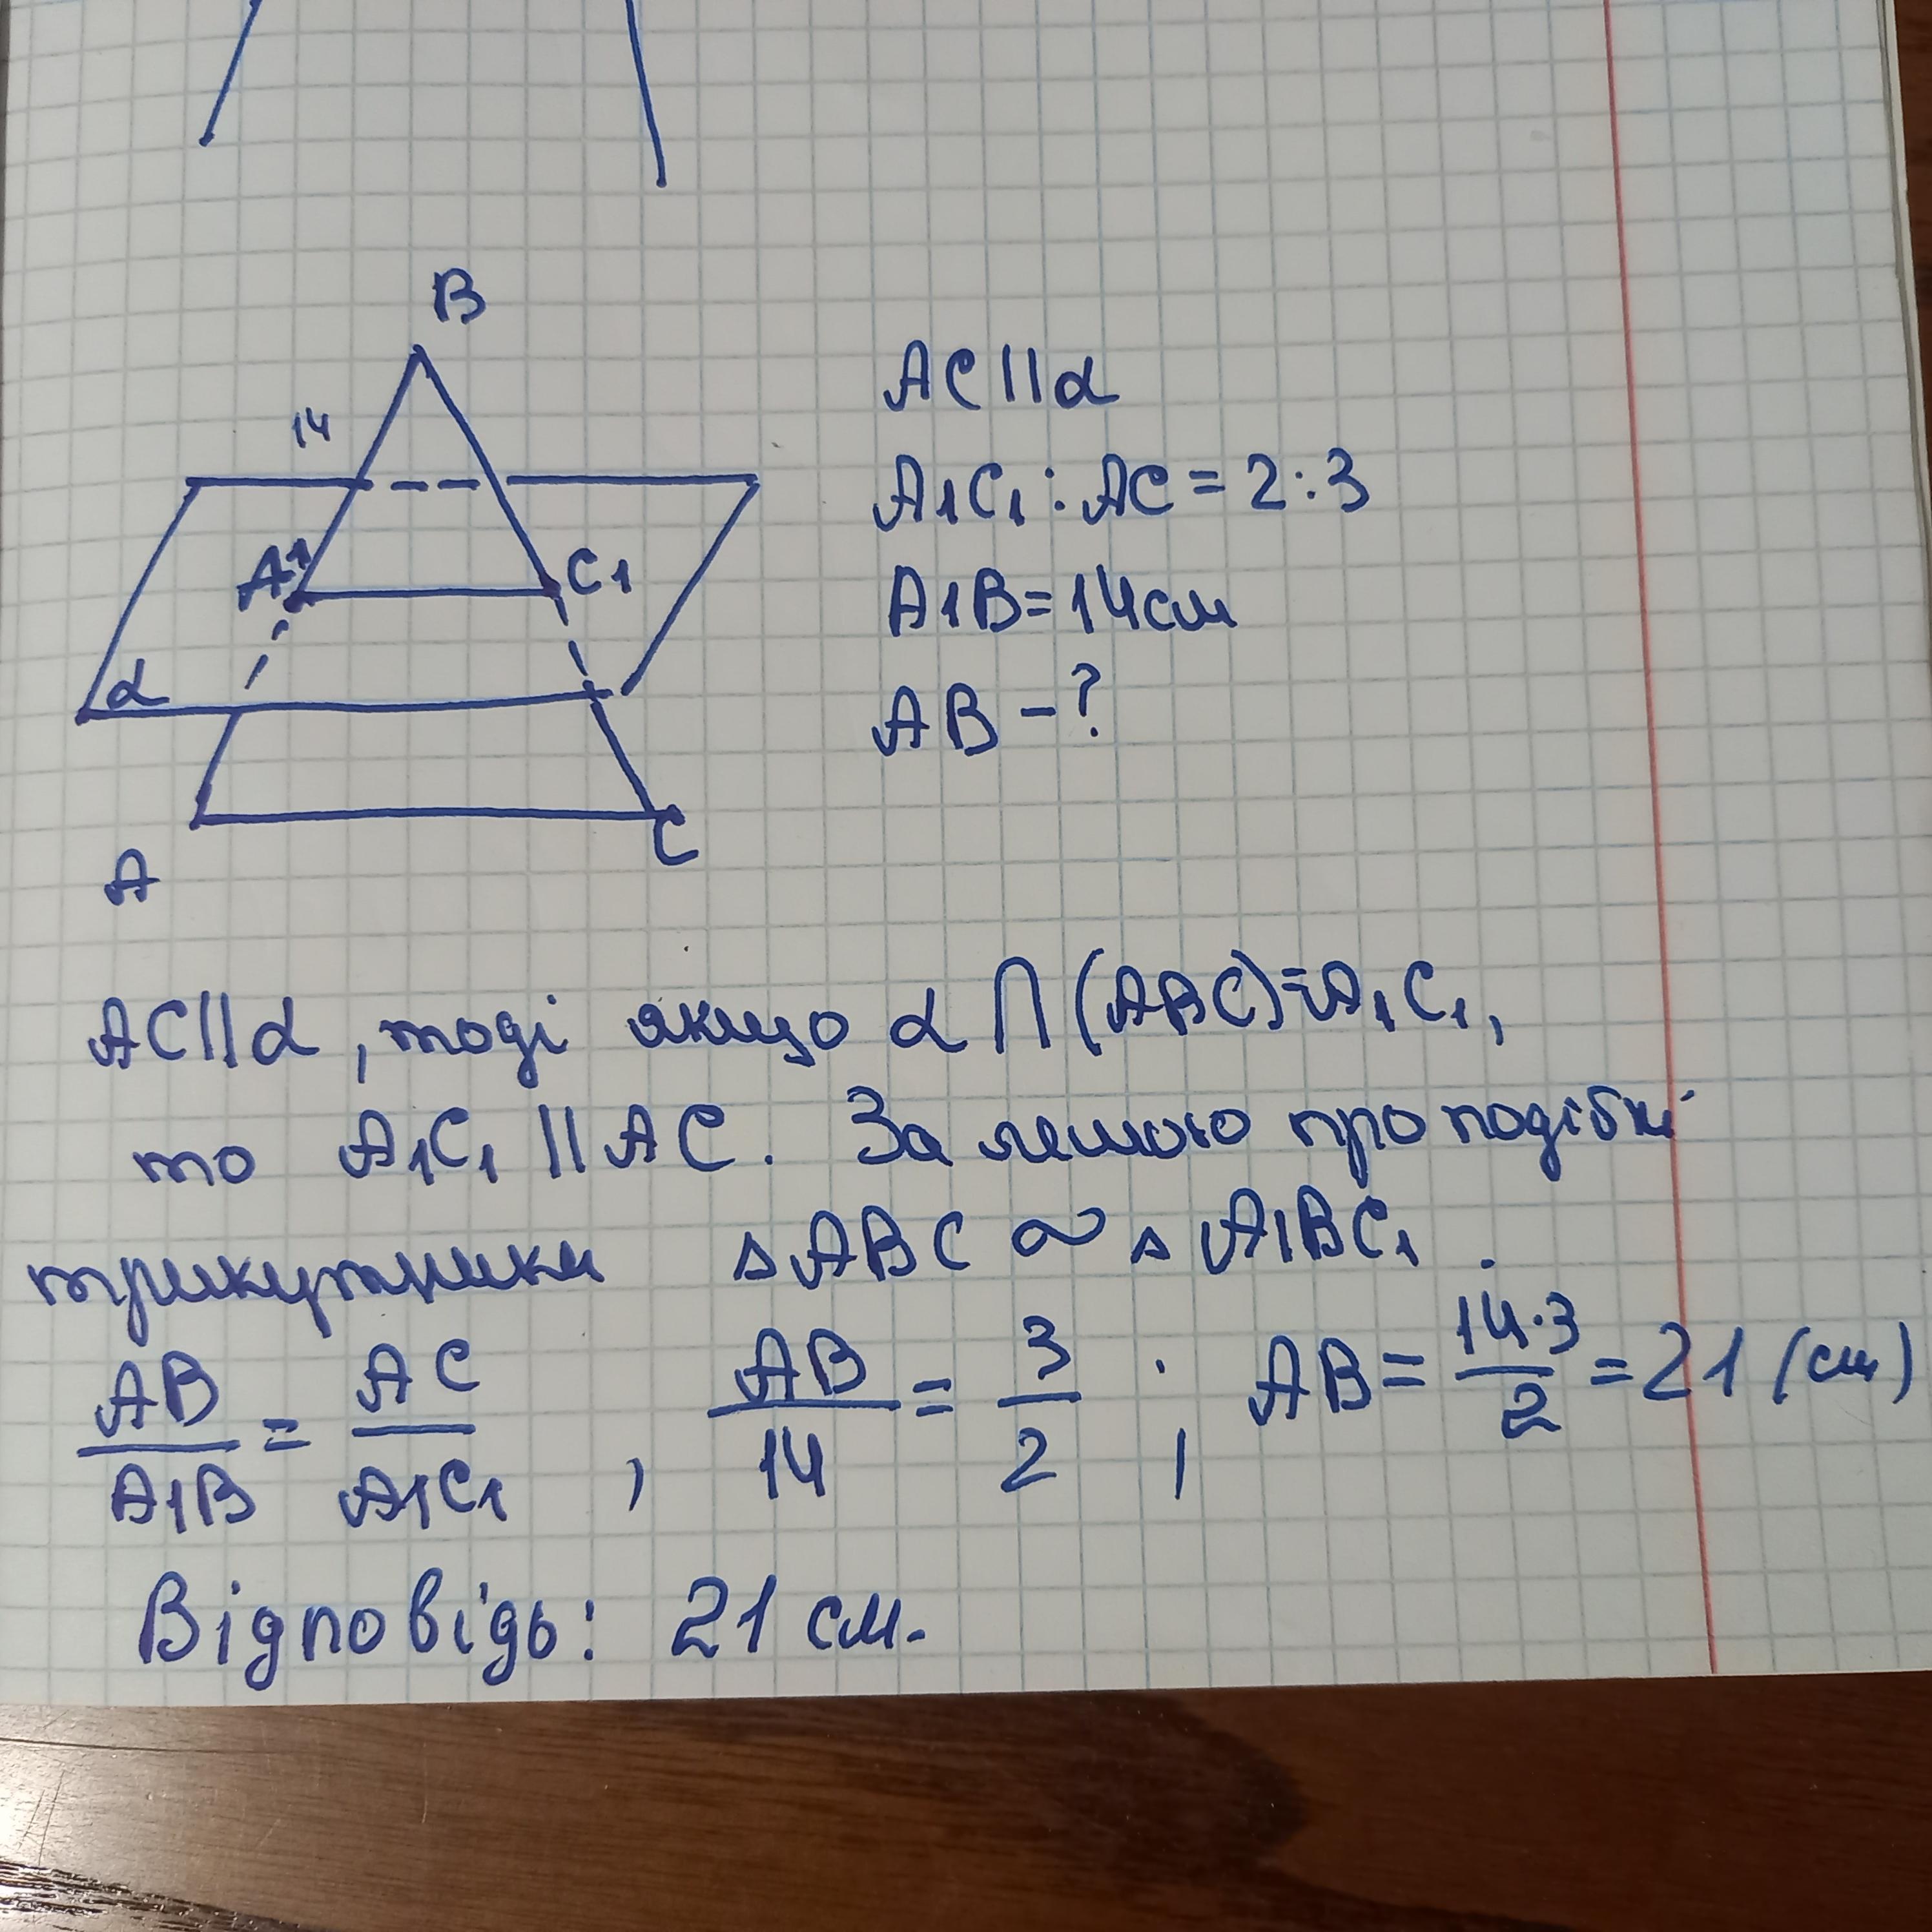 B
14
A1
C1
α
A
C
AC || α
A1C1 : AC = 2:3
A1B = 14 см
AB - ?
AC || α, тоді якщо α ∩ (ABC) = A1C1,
то A1C1 || AC. За лемою про подібні
трикутники △ABC ∾ △A1BC1.
AB/A1B = AC/A1C1, AB/14 = 3/2; AB = 14·3/2 = 21 (см)
Відповідь: 21 см.